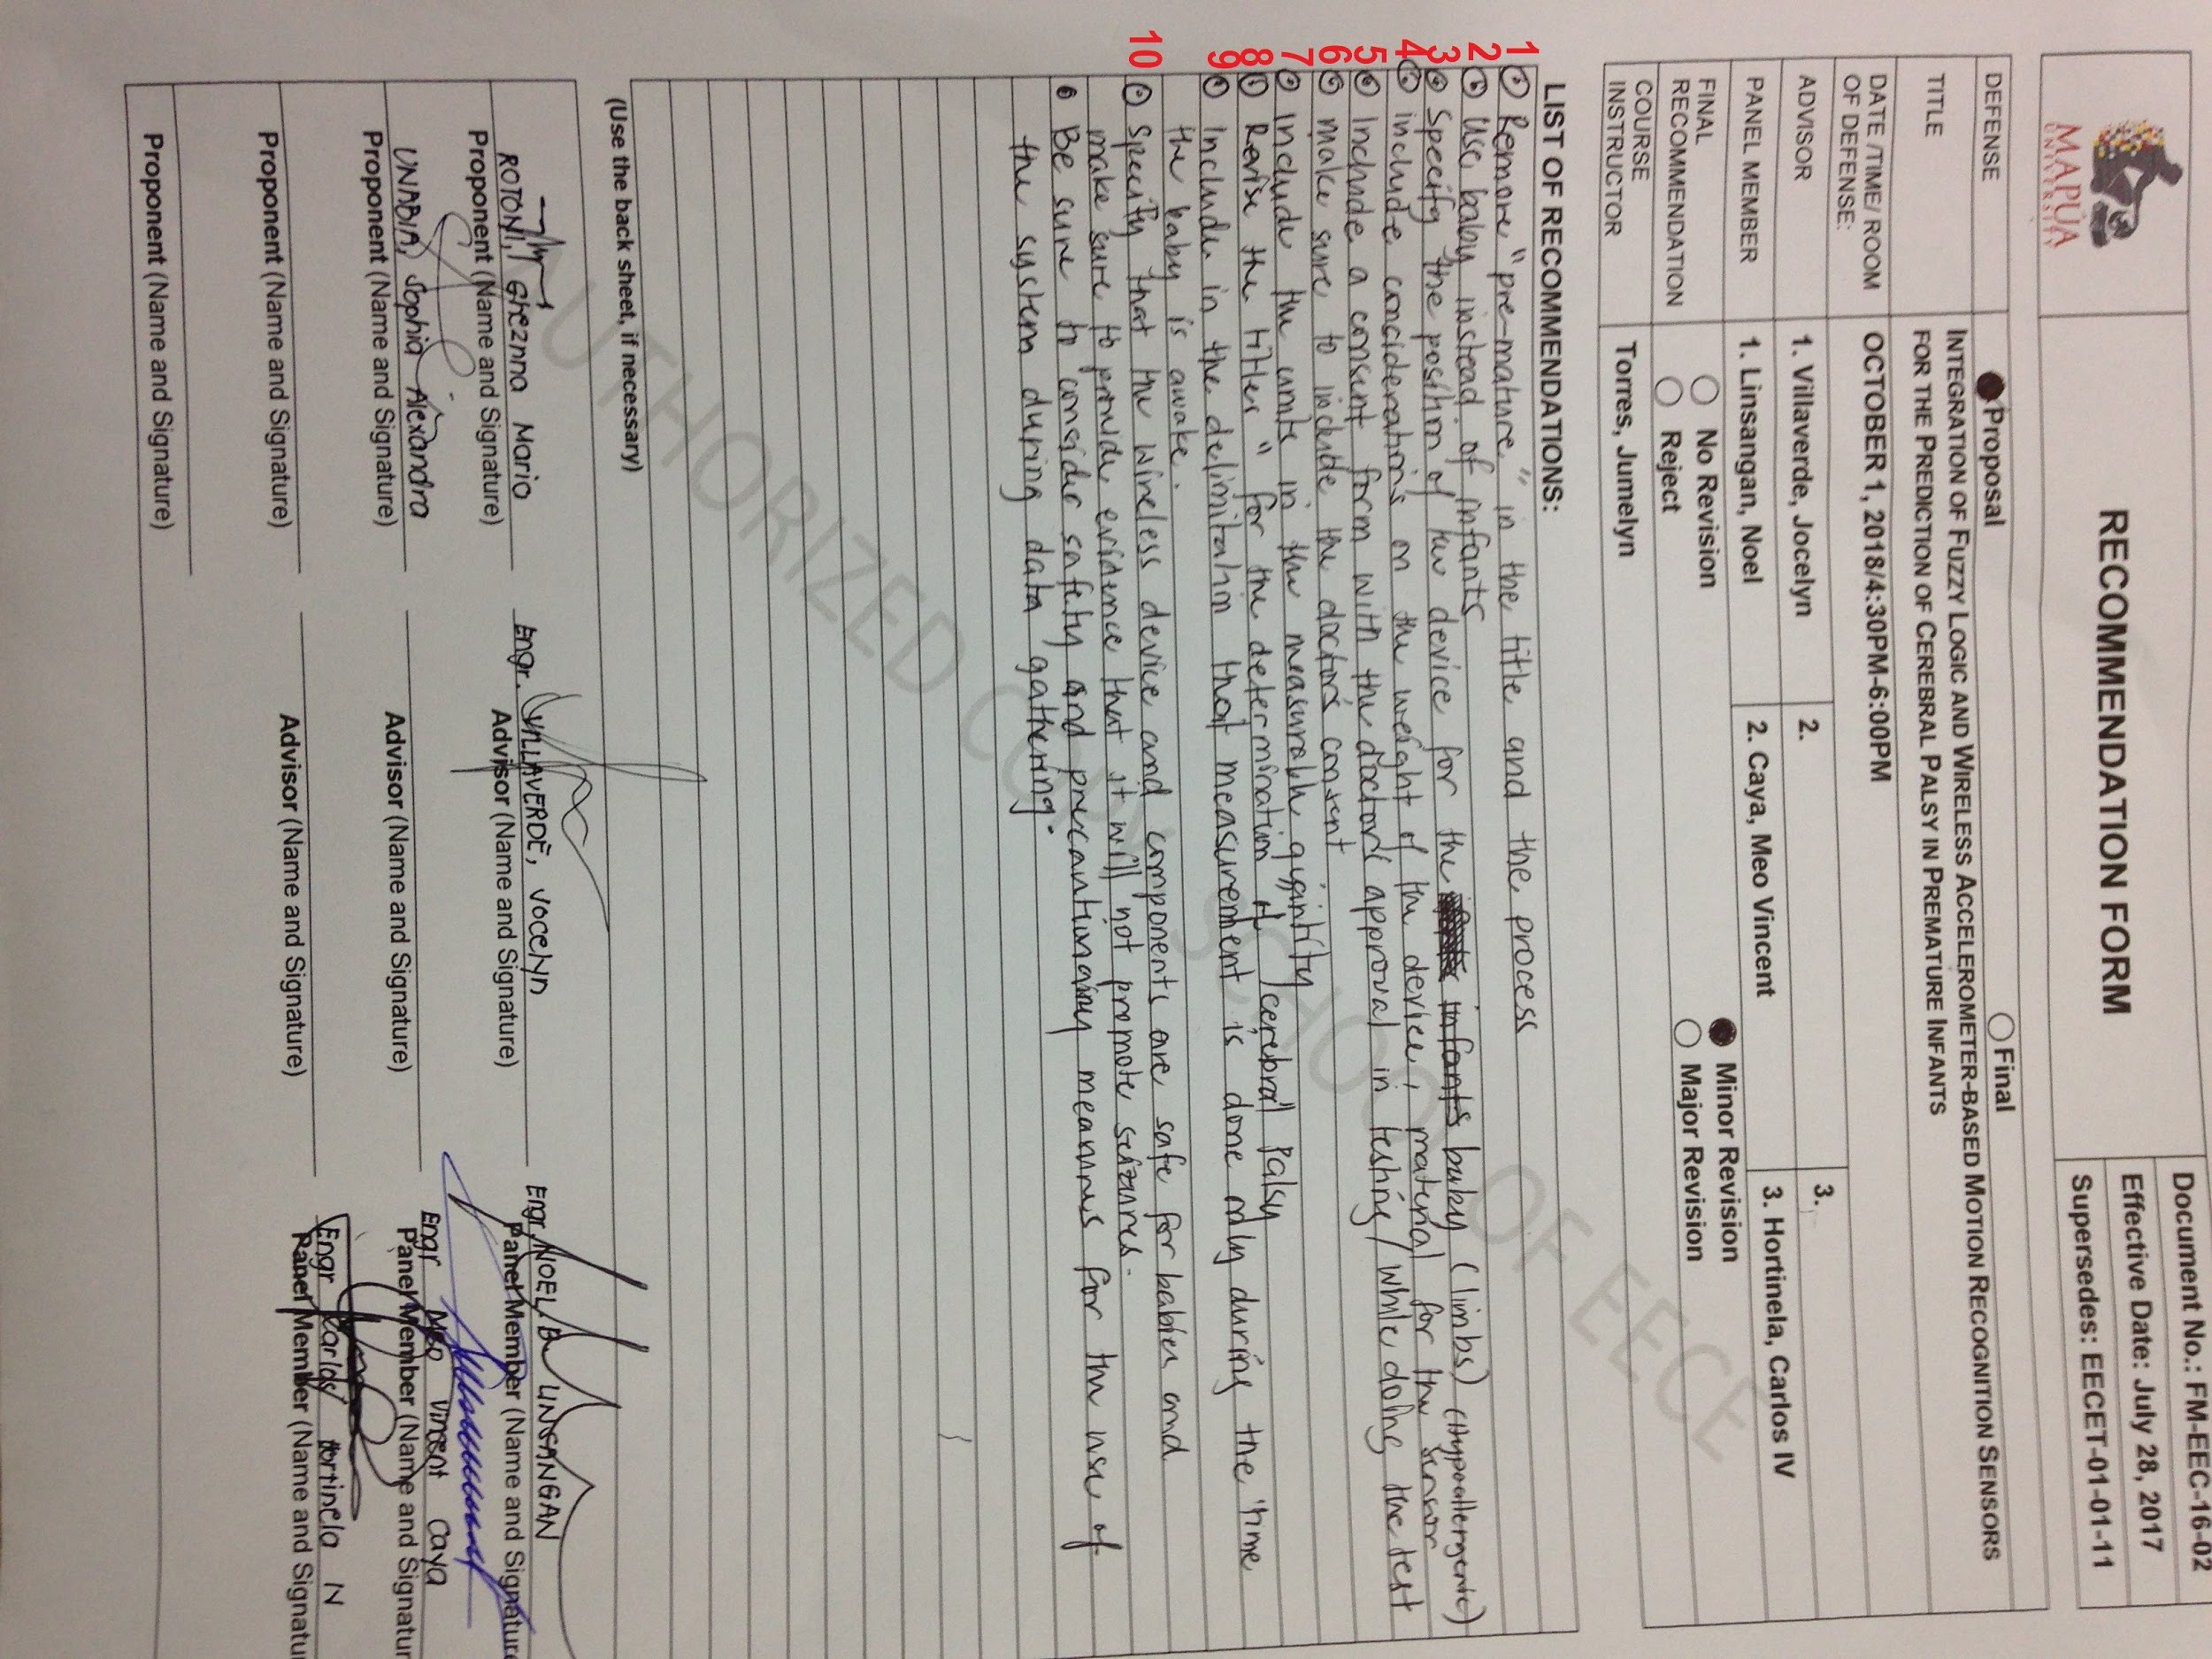 MAPÚA
UNIVERSITY
RECOMMENDATION FORM
Document No.: FM-EEC-16-02
Effective Date: July 28, 2017
Supersedes: EECET-01-01-11
DEFENSE
Proposal
Final
TITLE
INTEGRATION OF FUZZY LOGIC AND WIRELESS ACCELEROMETER-BASED MOTION RECOGNITION SENSORS
FOR THE PREDICTION OF CEREBRAL PALSY IN PREMATURE INFANTS
DATE /TIME/ ROOM
OF DEFENSE:
OCTOBER 1, 2018/4:30PM-6:00PM
ADVISOR
1. Villaverde, Jocelyn
2.
3.
PANEL MEMBER
1. Linsangan, Noel
2. Caya, Meo Vincent
3. Hortinela, Carlos IV
FINAL
RECOMMENDATION
No Revision
Minor Revision
Reject
Major Revision
COURSE
INSTRUCTOR
Torres, Jumelyn
LIST OF RECOMMENDATIONS:
1 Remove "pre-mature" in the title and the process
2 Use baby instead of infants
3 Specify the position of the device for the infants baby (limbs) (Hypoallergenic)
4 include conciderations on the weight of the device, material for the sensor
5 Include a consent form with the doctors approval in testing/while doing the test
6 make sure to include the doctors consent
7 Include the units in the measurable quantity
8 Revise the titles " for the determination of cerebral Palsy
9 Include in the delimitation that measurement is done only during the time
the baby is awake.
10 Specify that the wireless device and components are safe for babies and
make sure to provide evidence that it will not promote seizures.
Be sure to consider safety and precautionary means for the use of
the system during data gathering.
(Use the back sheet, if necessary)
AUTHORIZED COPY SCHOOL OF EECE
ROTONI, Gheznna Mario
Proponent (Name and Signature)
Engr. VILLAVERDE, Jocelyn
Advisor (Name and Signature)
Engr. NOEL B. LINSANGAN
Panel Member (Name and Signature
UNABIA, Sophia Alexandra
Proponent (Name and Signature)
Advisor (Name and Signature)
Engr Meo Vincent Caya
Panel Member (Name and Signatur
Proponent (Name and Signature)
Advisor (Name and Signature)
Engr Carlos Hortinela IV
Panel Member (Name and Signatur
Proponent (Name and Signature)